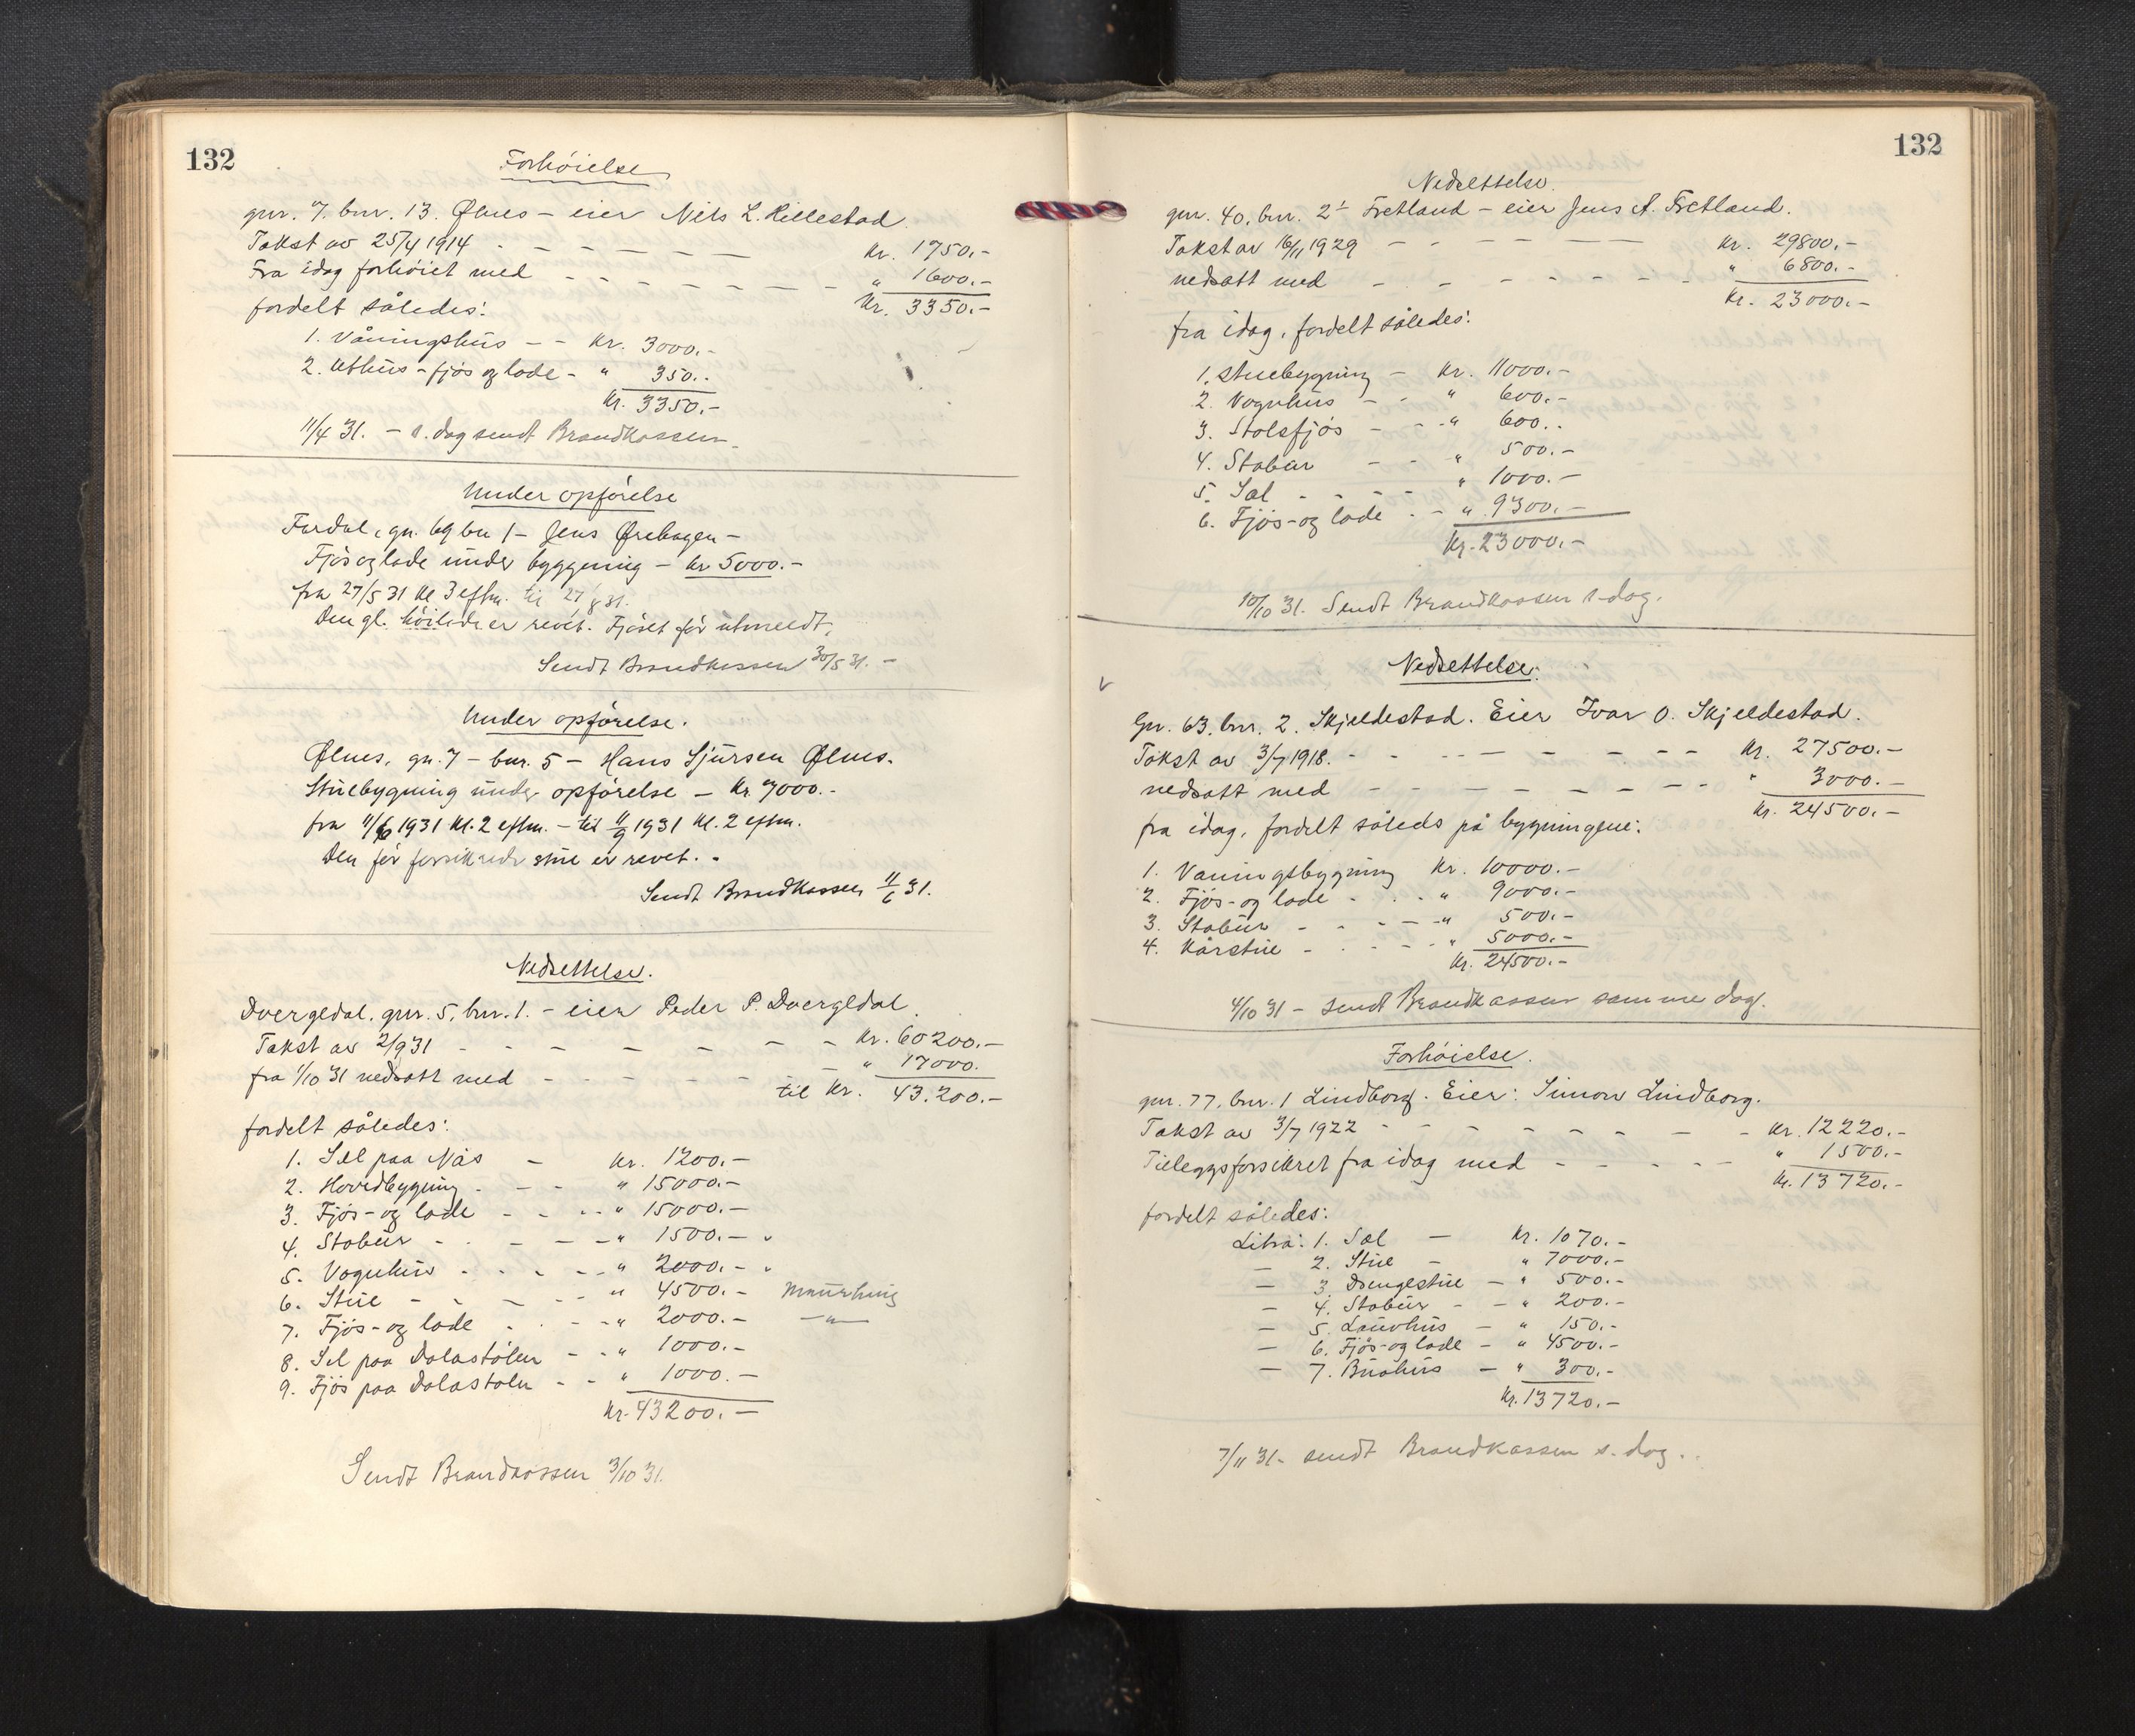 132
Forhöielse
gnr. 7. bnr. 13. Ølnes - eier Nils L. Hillestad
Takst av 25/4 1914 - - - - - - kr. 1750.-
Fra idag forhöiet med - - - - - - - " 1600.-
fordelt således: Kr. 3350.-
1. Våningshus - - Kr. 3000.-
2. Uthus - fjös og lade - " 350.-
Kr. 3350.-
11/4 31. - s. dag sendt Brandkassen.
Under opförelse
Fardal, gn. 69 bn 1 - Jens Ørebagen -
Fjös og lade under byggning - kr 5000.-
fra 27/5 31 kl 3 eftm. til 27/8 31.
Den gl. höilade er revet. Fjöset för utmeldt.
Sendt Brandkassen 30/5 31. -
Under opförelse.
Ølnes, gn. 7 - bnr. 5 - Hans Sjursen Ølnes.
Stuebygning under opförelse - Kr. 7000.-
fra 11/6 1931 kl. 2 eftm. - til 11/9 1931 kl. 2 eftm.
Den för forsikrede stue er revet. -
Sendt Brandkassen 11/6 31.
Nedsettelse.
Dvergedal, gnr. 5, bnr. 1. - eier Peder P. Dvergedal
Takst av 2/9 31 - - - - - - - Kr. 60200.-
fra 1/10 31 nedsatt med - - - - - - " 17000.
til Kr. 43.200.-
fordelt således:
1. Sel paa Nås - Kr. 1200.-
2. Hovedbygning - - - " 15000.-
3. Fjös- og lade - - - " 15000.-
4. Stabur - - - - " 1500.-
5. Vognhus - - - - " 2000.-
6. Stue - - - - " 4500.-
7. Fjös- og lade - - - " 2000.- - " -
8. Sel paa Dalastölen - - " 1000.-
9. Fjös paa Dalastöln - - " 1000.-
Kr. 43200.-
Sendt Brandkassen 3/10 31.
132
Nedsettelse.
gnr. 40, bnr. 2¹ Fretland - eier Jens A. Fretland.
Takst av 16/11 1929 - - - - - Kr. 29800.-
nedsatt med - - - - - - - " 6800.-
Kr. 23000.-
fra idag, fordelt således:
1. Stuebygning - Kr. 11000.-
2. Vognhus - - " 600.-
3. Stölsfjös - - " 600.-
4. Stabur - - " 500.-
5. Sel - - - - " 1000.-
6. Fjös- og lade - - " 9300.-
Kr. 23000.-
10/10 31. Sendt Brandkassen s. dag.
Nedsettelse.
Gn. 63, bnr. 2. Skjeldestad. Eier Ivar O. Skjeldestad.
Takst av 3/7 1918. - - - - - - - - Kr. 27500.-
nedsatt med - - - - - - - - " 3000.-
Kr. 24500.-
fra idag, fordelt således på bygningene:
1. Vaningsbygning Kr. 10000.-
2. Fjös- og lade - - - " 9000.-
3. Stabur - - - - " 500.-
4. Kårstue - - - - " 5000.-
Kr. 24500.-
4/10 31 - sendt Brandkassen samme dag.
Forhöielse.
gnr. 77, bnr. 1 Lindborg. Eier: Simon Lindborg.
Takst av 3/7 1922 - - - - - - - - Kr. 12220.-
Tilleggsforsikret fra idag med - - - - - " 1500.-
Kr. 13720.-
fordelt således:
Litra: 1. Sel - Kr. 1070.-
- 2. Stue - " 7000.-
- 3. Drengestue - " 500.-
- 4. Stabur - - " 200.-
- 5. Lauvhus - " 150.-
- 6. Fjös- og lade - " 4500.-
- 7. Buahus - " 300.-
Kr. 13720.-
7/11 31 - sendt Brandkassen s. dag.